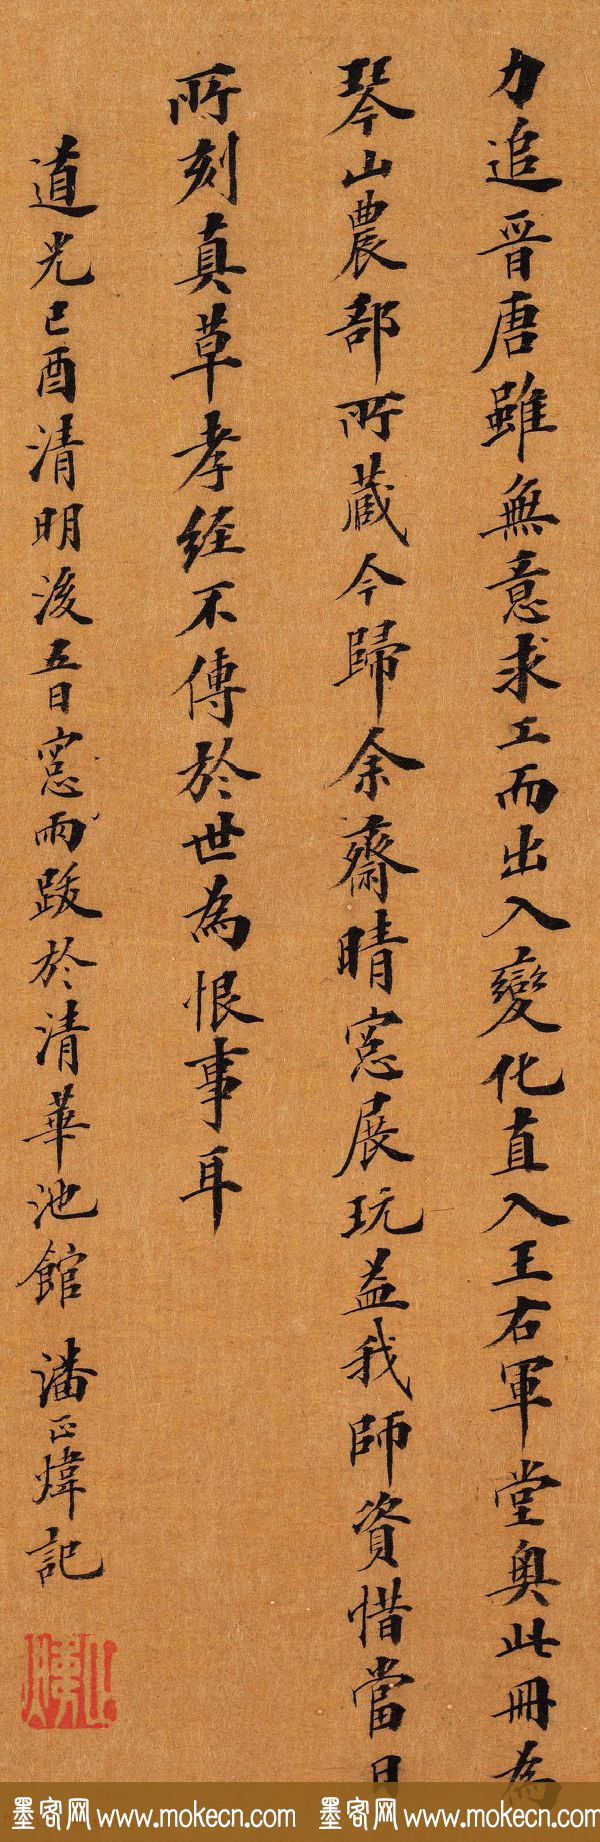 力追晉唐雖無意求工而出入變化直入王右軍堂奧此冊為
琴山農部所藏今歸余齋晴窓展玩益我師資惜當日
所刻真草孝經不傳於世為恨事耳
道光己酉清明後五日窓雨跋於清華池館 潘正煒記
正煒
墨客网 www.mokecn.com 墨客网 www.mokecn.com